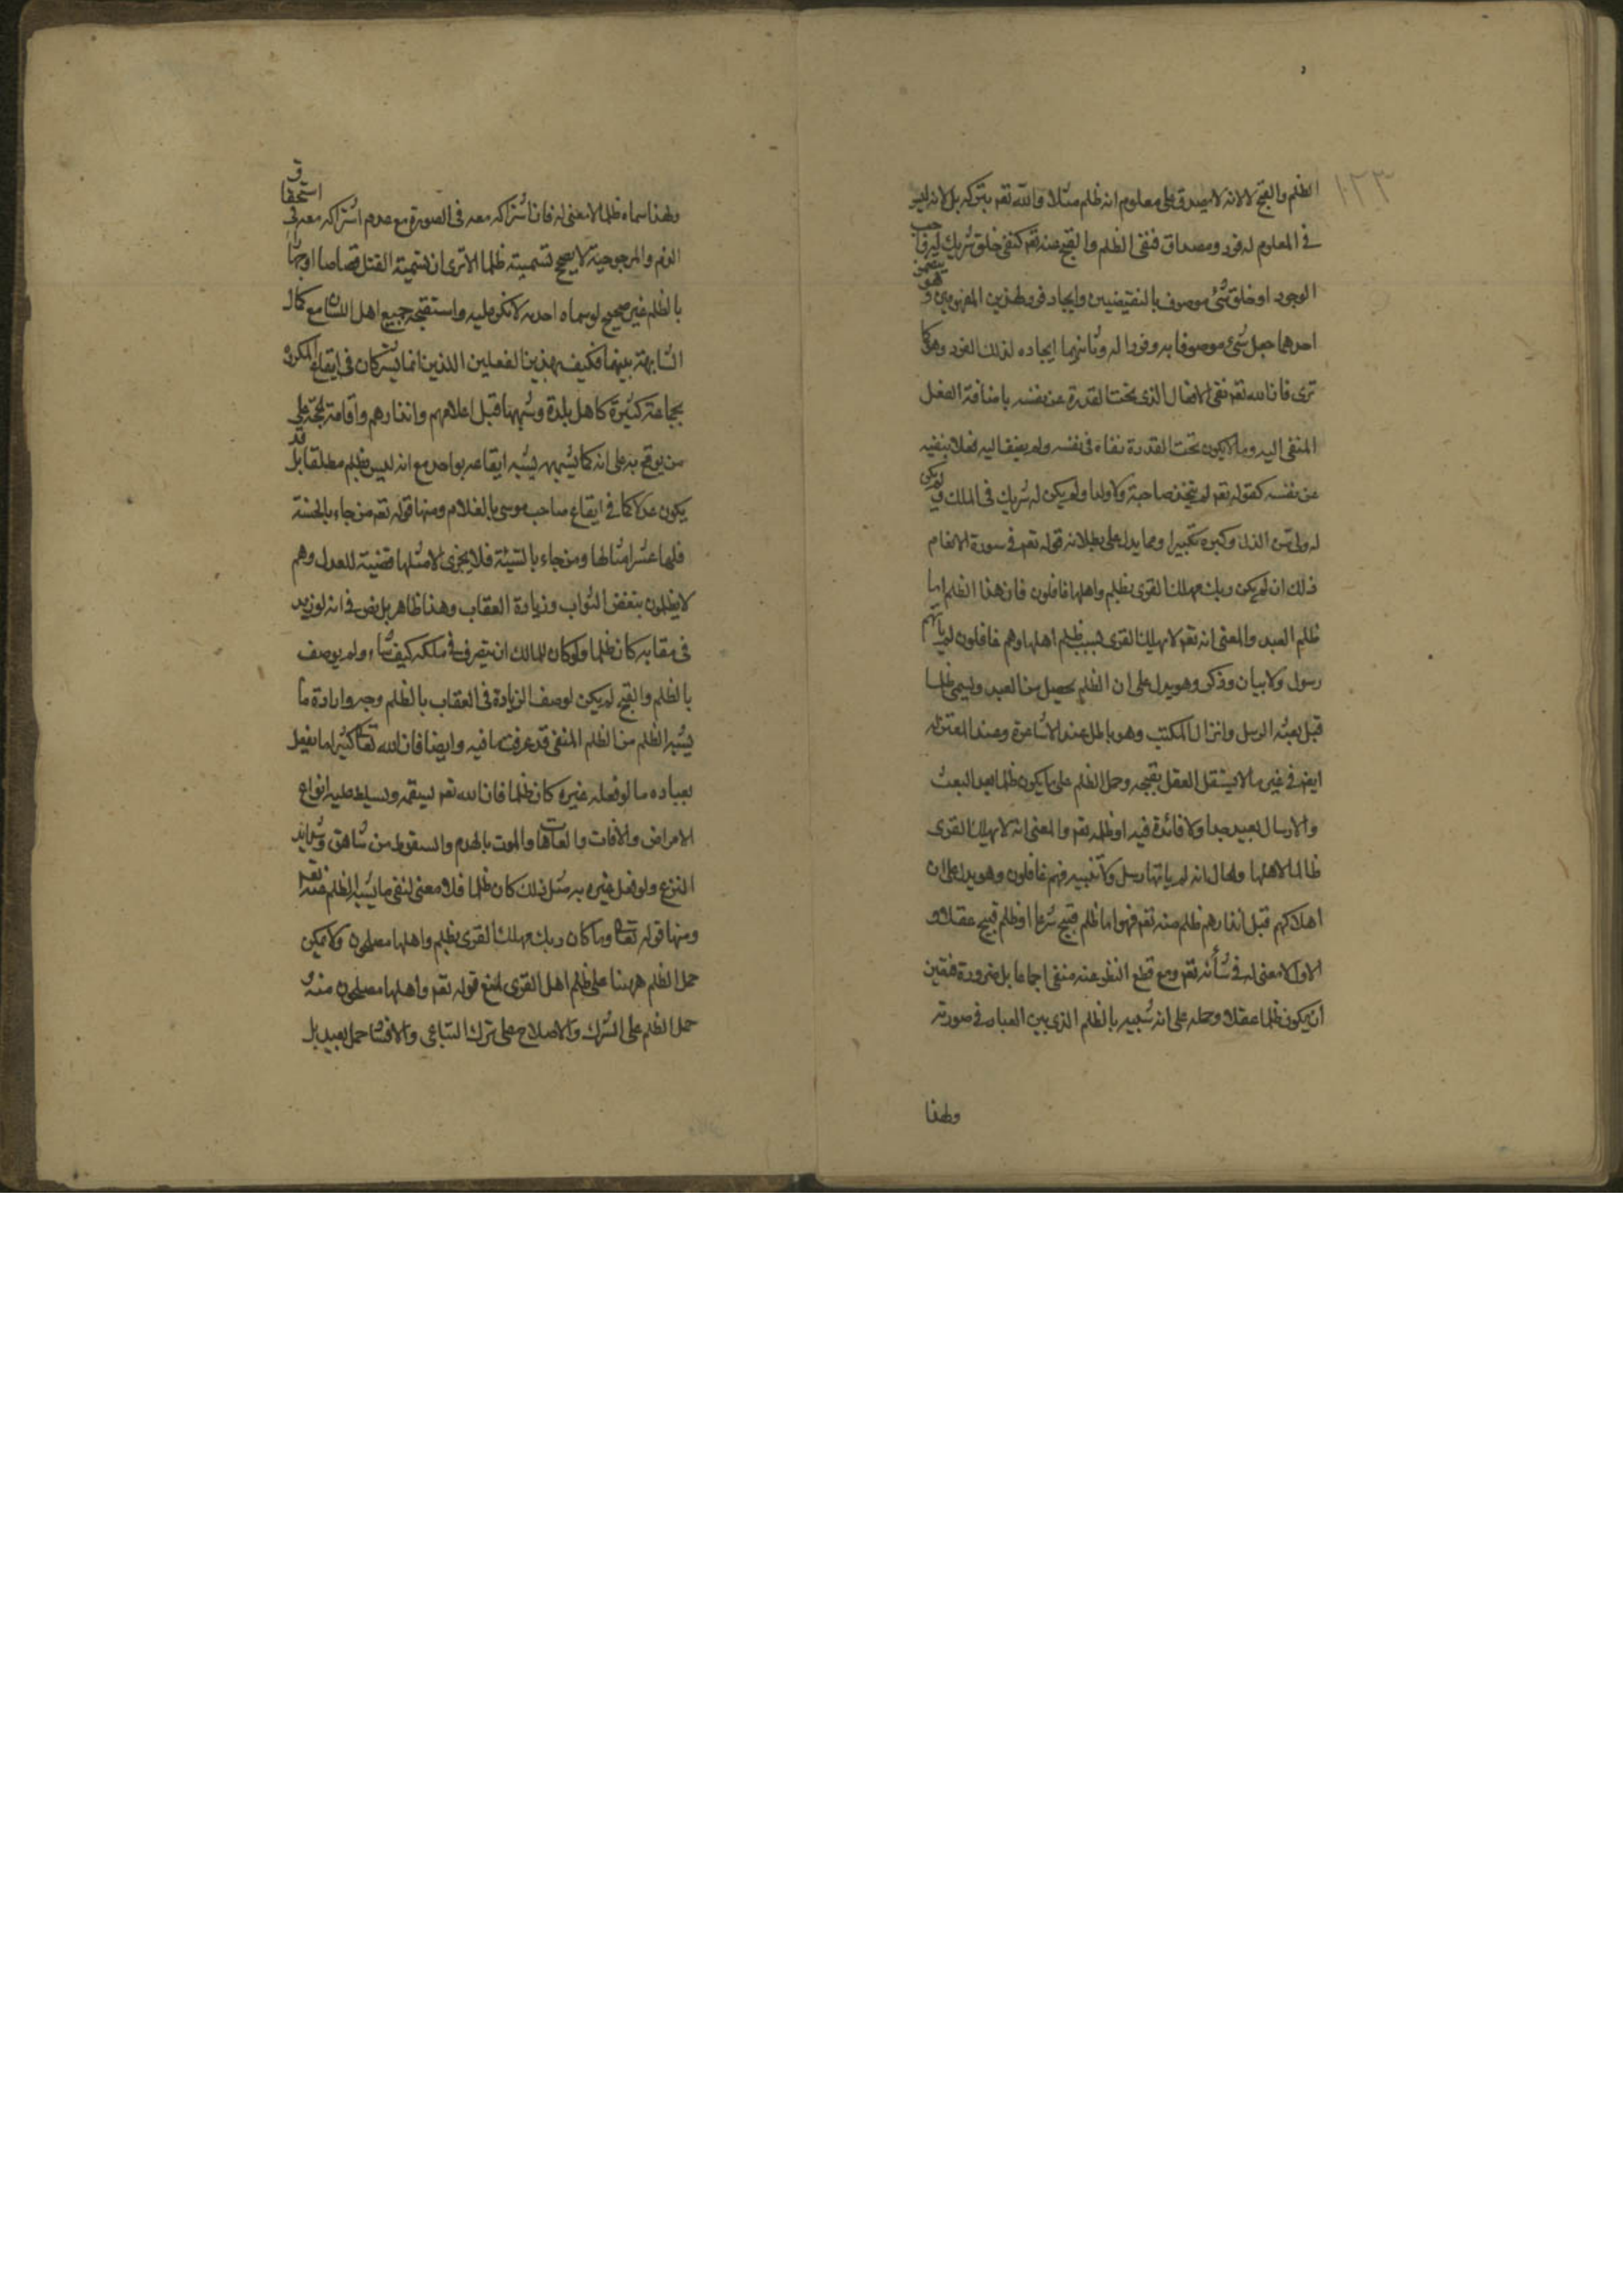 ١٢٣
الظلم والقبح لا لانه لا يصدق على معلوم انه ظلم مثلا والله تعم يتركه بل لانه ليس
في المعلوم له فرد ومصداق فنفى الظلم والقبح منه تعم كنفى خلق شريك له واجب
الوجود او خلق شئ موصوف بالنقيضين وايجاد فرد لهذين المفهومين وهو يتضمن
احدهما جعل شئ موصوفا به وفردا له وثانيهما ايجاده لذلك الفرد وهو كما
ترى فان الله تعم نفى الافعال الذى تحت القدرة عن نفسه باضافة الفعل
المنفى اليه وما لا يكون تحت القدرة نفاه فى نفسه ولم يضف اليه فعلا ينفيه
عن نفسه كقوله تعم لم يتخذ صاحبة ولا ولدا ولم يكن له شريك فى الملك ولم يكن
له ولى من الذل وكبره تكبيرا ومما يدل على بطلانه قوله تعم في سورة الانعام
ذلك ان لم يكن ربك مهلك القرى بظلم واهلها غافلون فان هذا الظلم اما
ظلم العبد والمعنى انه تعم لا يهلك القرى بسبب ظلم اهلها وهم غافلون لم ياتهم
رسول ولا بيان وذكر وهو يدل على ان الظلم يحصل من العبد ويسمى ظلما
قبل بعثه الرسل وانزال الكتب وهو باطل عند الاشاعرة وعند المعتزله
ايضا في غير ما لا يستقل العقل بقبحه وحمل الظلم على ما يكون ظلما بعد البعث
والارسال بعيد جدا ولا فائدة فيه او ظلمه تعم والمعنى انه لا يهلك القرى
ظالما لاهلها والحال انه لم ياتها رسل ولا تنبيه فهم غافلون وهو يدل على ان
اهلاكهم قبل انذارهم ظلم منه تعم فهو اما ظلم قبيح شرعا او ظلم قبيح عقلا و
الاول لا معنى له في شأنه تعم ومع قطع النظر عنه منفى اجماعا بل ضرورة فتعين
ان يكون ظلما عقلا وحمله على انه شبيه بالظلم الذى بين العباد في صورته
وهذا
وهذا سماه ظلما لا معنى له فان اشتراكه معه فى الصورة مع عدم اشتراكه معه في استحقاق
الذم والمرجوحية لا يصح تسميته ظلما الا ترى ان تسمية القتل قصاصا او حدا
بالظلم غير صحيح لو سماه احد به لانكر عليه واستقبحه جميع اهل اللسان مع كمال
المشابهة بينهما فكيف بهذين الفعلين الذين انما يشتركان في ايقاع المكروه
بجماعة كثيرة كاهل بلدة وشبهها قبل اعلامهم وانذارهم واقامة الحجة على
من يوقع به على انه كما يشبهه يشبه ايقاعه بواحد مع انه ليس بظلم مطلقا بل قد
يكون عدلا كما في ايقاع صاحب موسى بالغلام ومنها قوله تعم من جاء بالحسنة
فله عشر امثالها ومن جاء بالسيئة فلا يجزى الا مثلها قضية للعدل وهم
لا يظلمون بنقص الثواب وزيادة العقاب وهذا ظاهر بل نص في انه لو زيد
فى عقابه كان ظلما ولو كان للمالك ان يتصرف في ملكه كيف شاء ولم يوصف
بالظلم والقبح لم يكن لوصف الزيادة فى العقاب بالظلم وجه وارادة ما
يشبه الظلم من الظلم المنفى قد عرفت ما فيه وايضا فان الله تعالى كثيرا ما يفعل
بعباده ما لو فعله غيره كان ظلما فان الله تعم يسقمه ويسلط عليه انواع
الامراض والافات والعاهات والموت بالهدم والسقوط من شاهق وشدايد
النزع ولو فعل غيره به مثل ذلك كان ظلما فلا معنى لنفى ما يشبه الظلم عنه تعم
ومنها قوله تعالى وما كان ربك ليهلك القرى بظلم واهلها مصلحون ولا يمكن
حمل الظلم ههنا على ظلم اهل القرى لمنع قوله تعم واهلها مصلحون منه و
حمل الظلم على الشرك والاصلاح على ترك التباغى والافشا حمل بعيد بل